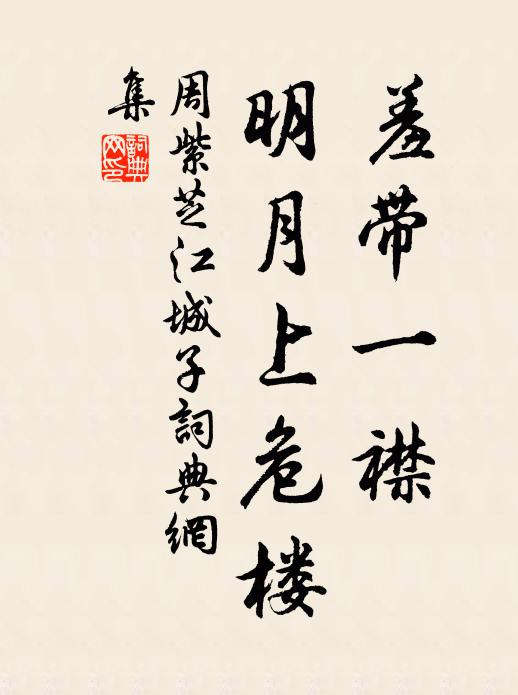 羞带一襟
明月上危楼
周紫芝江城子詞典網
集
詞典
网印